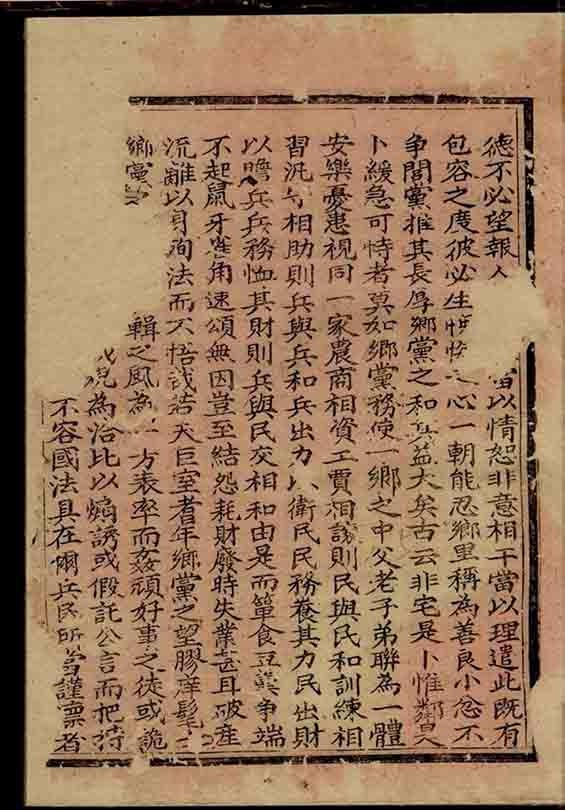 德不必望報人 當以情恕非意相干當以理遣此既有
包容之度彼必生愧悔之心一朝能忍鄉里稱為善良小忿不
爭閭黨推其長厚鄉黨之和其益大矣古云非宅是卜惟鄰是
卜緩急可恃者莫如鄉黨務使一鄉之中父老子弟聯為一體
安樂憂患視同一家農商相資工賈相讓則民與民和訓練相
習汛 相助則兵與兵和兵出力以衛民民務養其力民出財
以贍兵兵務恤其財則兵與民交相和由是而簞食豆羹爭端
不起鼠牙雀角速頌無因豈至結怨耗財廢時失業甚且破產
流離以身殉法而不悟哉若夫巨室耆年鄉黨之望膠庠髦士
鄉黨 輯之風為一方表率而姦頑好事之徒或詭
為洽比以煽誘或假託公言而把持
不容國法具在爾兵民所當謹凜者